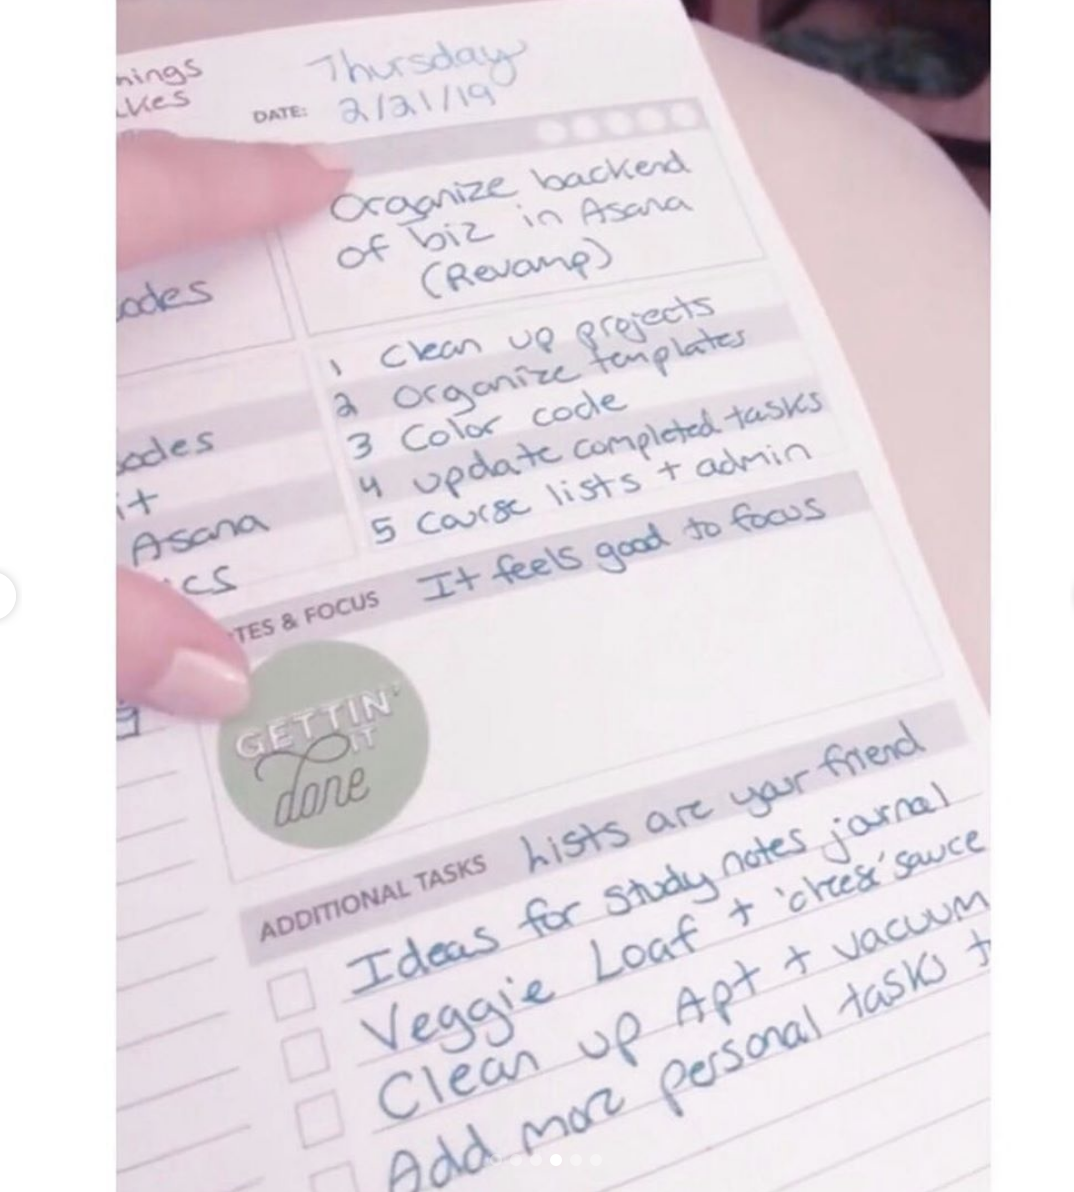 Thursday
DATE: 2/21/19
Organize backend
of biz in Asana
(Revamp)
1 Clean up projects
2 Organize templates
3 Color code
4 update completed tasks
5 Course lists + admin
Asana
& FOCUS It feels good to focus
GETTIN'
IT
done
ADDITIONAL TASKS Lists are your friend
Ideas for study notes journal
Veggie Loaf + 'cheese' sauce
Clean up Apt + vacuum
Add more personal tasks